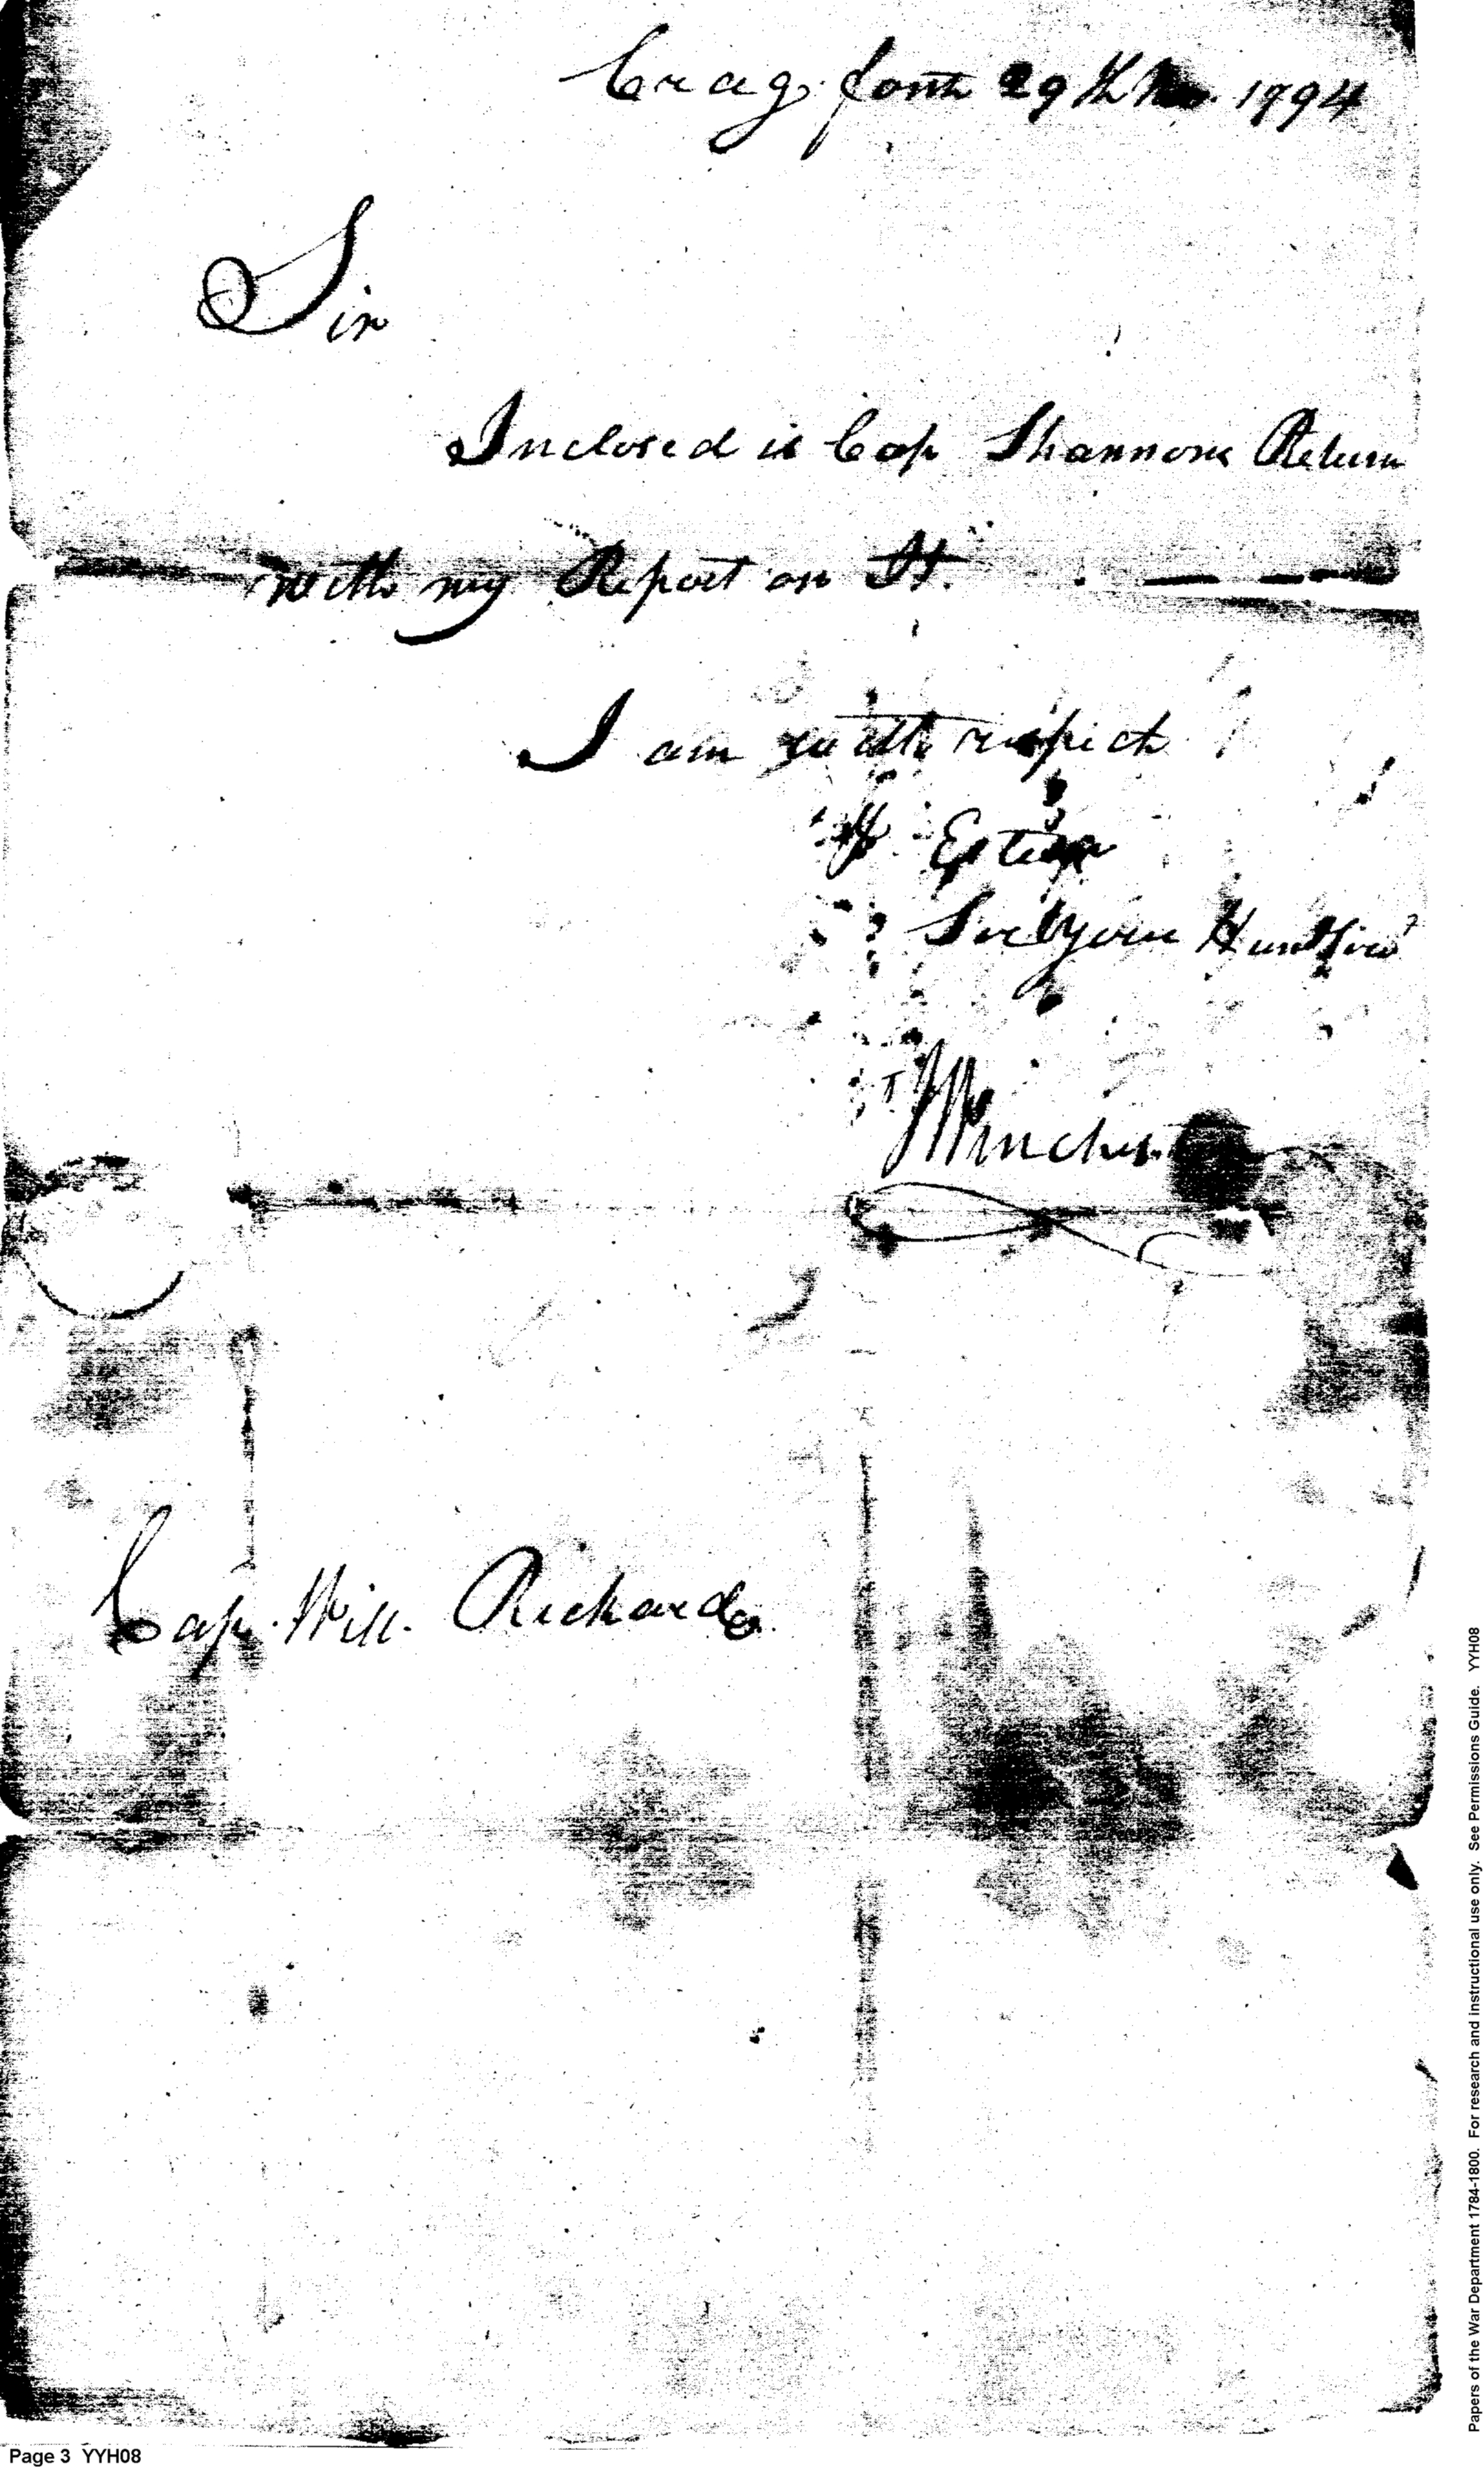 Crag font 29th 1794
Sir
Inclosed is Cap Shannons Return
with my Report on It.
I am with respect
& Esteem
Sir your Humb Serv
J Winches
Cap. Will. Richards.
Page 3 YYH08
Papers of the War Department 1784-1800. For research and instructional use only. See Permissions Guide. YYH08